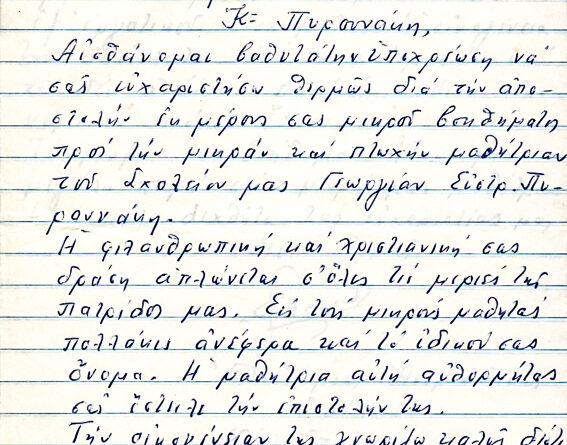 Κ= Πυρουνάκη,
Αἰσθάνομαι βαθυτάτην ὑποχρέωση νά
σᾶς εὐχαριστήσω θερμῶς διά τήν ἀπο-
στολήν ἐκ μέρους σας μικροῦ βοηθήματος
πρός τήν μικράν καί πτωχήν μαθήτριαν
τοῦ Σχολείου μας Γεωργίαν Εὐστρ. Πυ-
ρουνάκη.
Ἡ φιλανθρωπική καί χριστιανική σας
δράση ἁπλώνεται σ' ὅλες τίς μεριές τῆς
Πατρίδος μας. Εἰς τούς μικρούς μαθητάς
πολλάκις ἀνέφερα καί τό ἰδικόν σας
ὄνομα. Ἡ μαθήτρια αὐτή αὐθορμήτως
σᾶς ἔστειλε τήν ἐπιστολήν της.
Τήν οἰκογένειαν της γνωρίζω καλῶς διότι